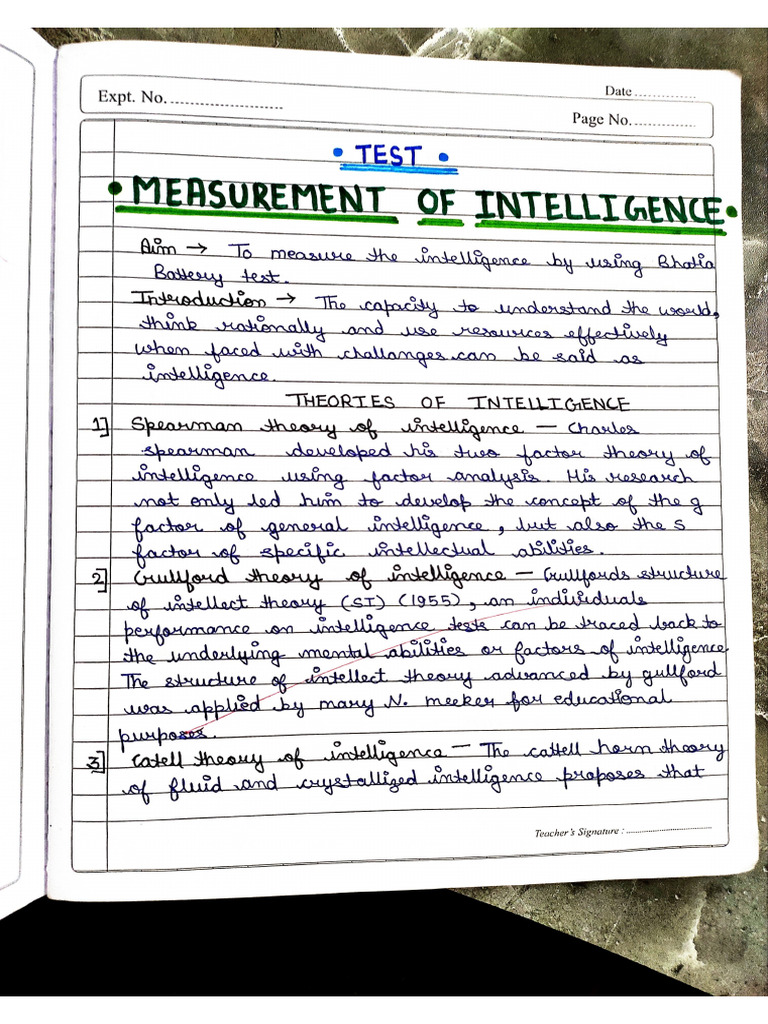 Date ..............
Expt. No. ........................
Page No. ...............
• TEST •
• MEASUREMENT OF INTELLIGENCE •
Aim → To measure the intelligence by using Bhatia
Battery test.
Introduction → The capacity to understand the world,
think rationally and use resources effectively
when faced with challanges can be said as
intelligence.
THEORIES OF INTELLIGENCE
1] Spearman theory of intelligence — Charles
spearman developed his two factor theory of
intelligence using factor analysis. His research
not only led him to develop the concept of the g
factor of general intelligence, but also the s
factor of specific intellectual abilities.
2] Guilford theory of intelligence — Guilfords structure
of intellect theory (SI) (1955), an individuals
performance on intelligence tests can be traced back to
the underlying mental abilities or factors of intelligence
The structure of intellect theory advanced by guilford
was applied by mary N. meeker for educational
purposes.
3] Catell theory of intelligence — The cattell horn theory
of fluid and crystallized intelligence proposes that
Teacher's Signature : ........................